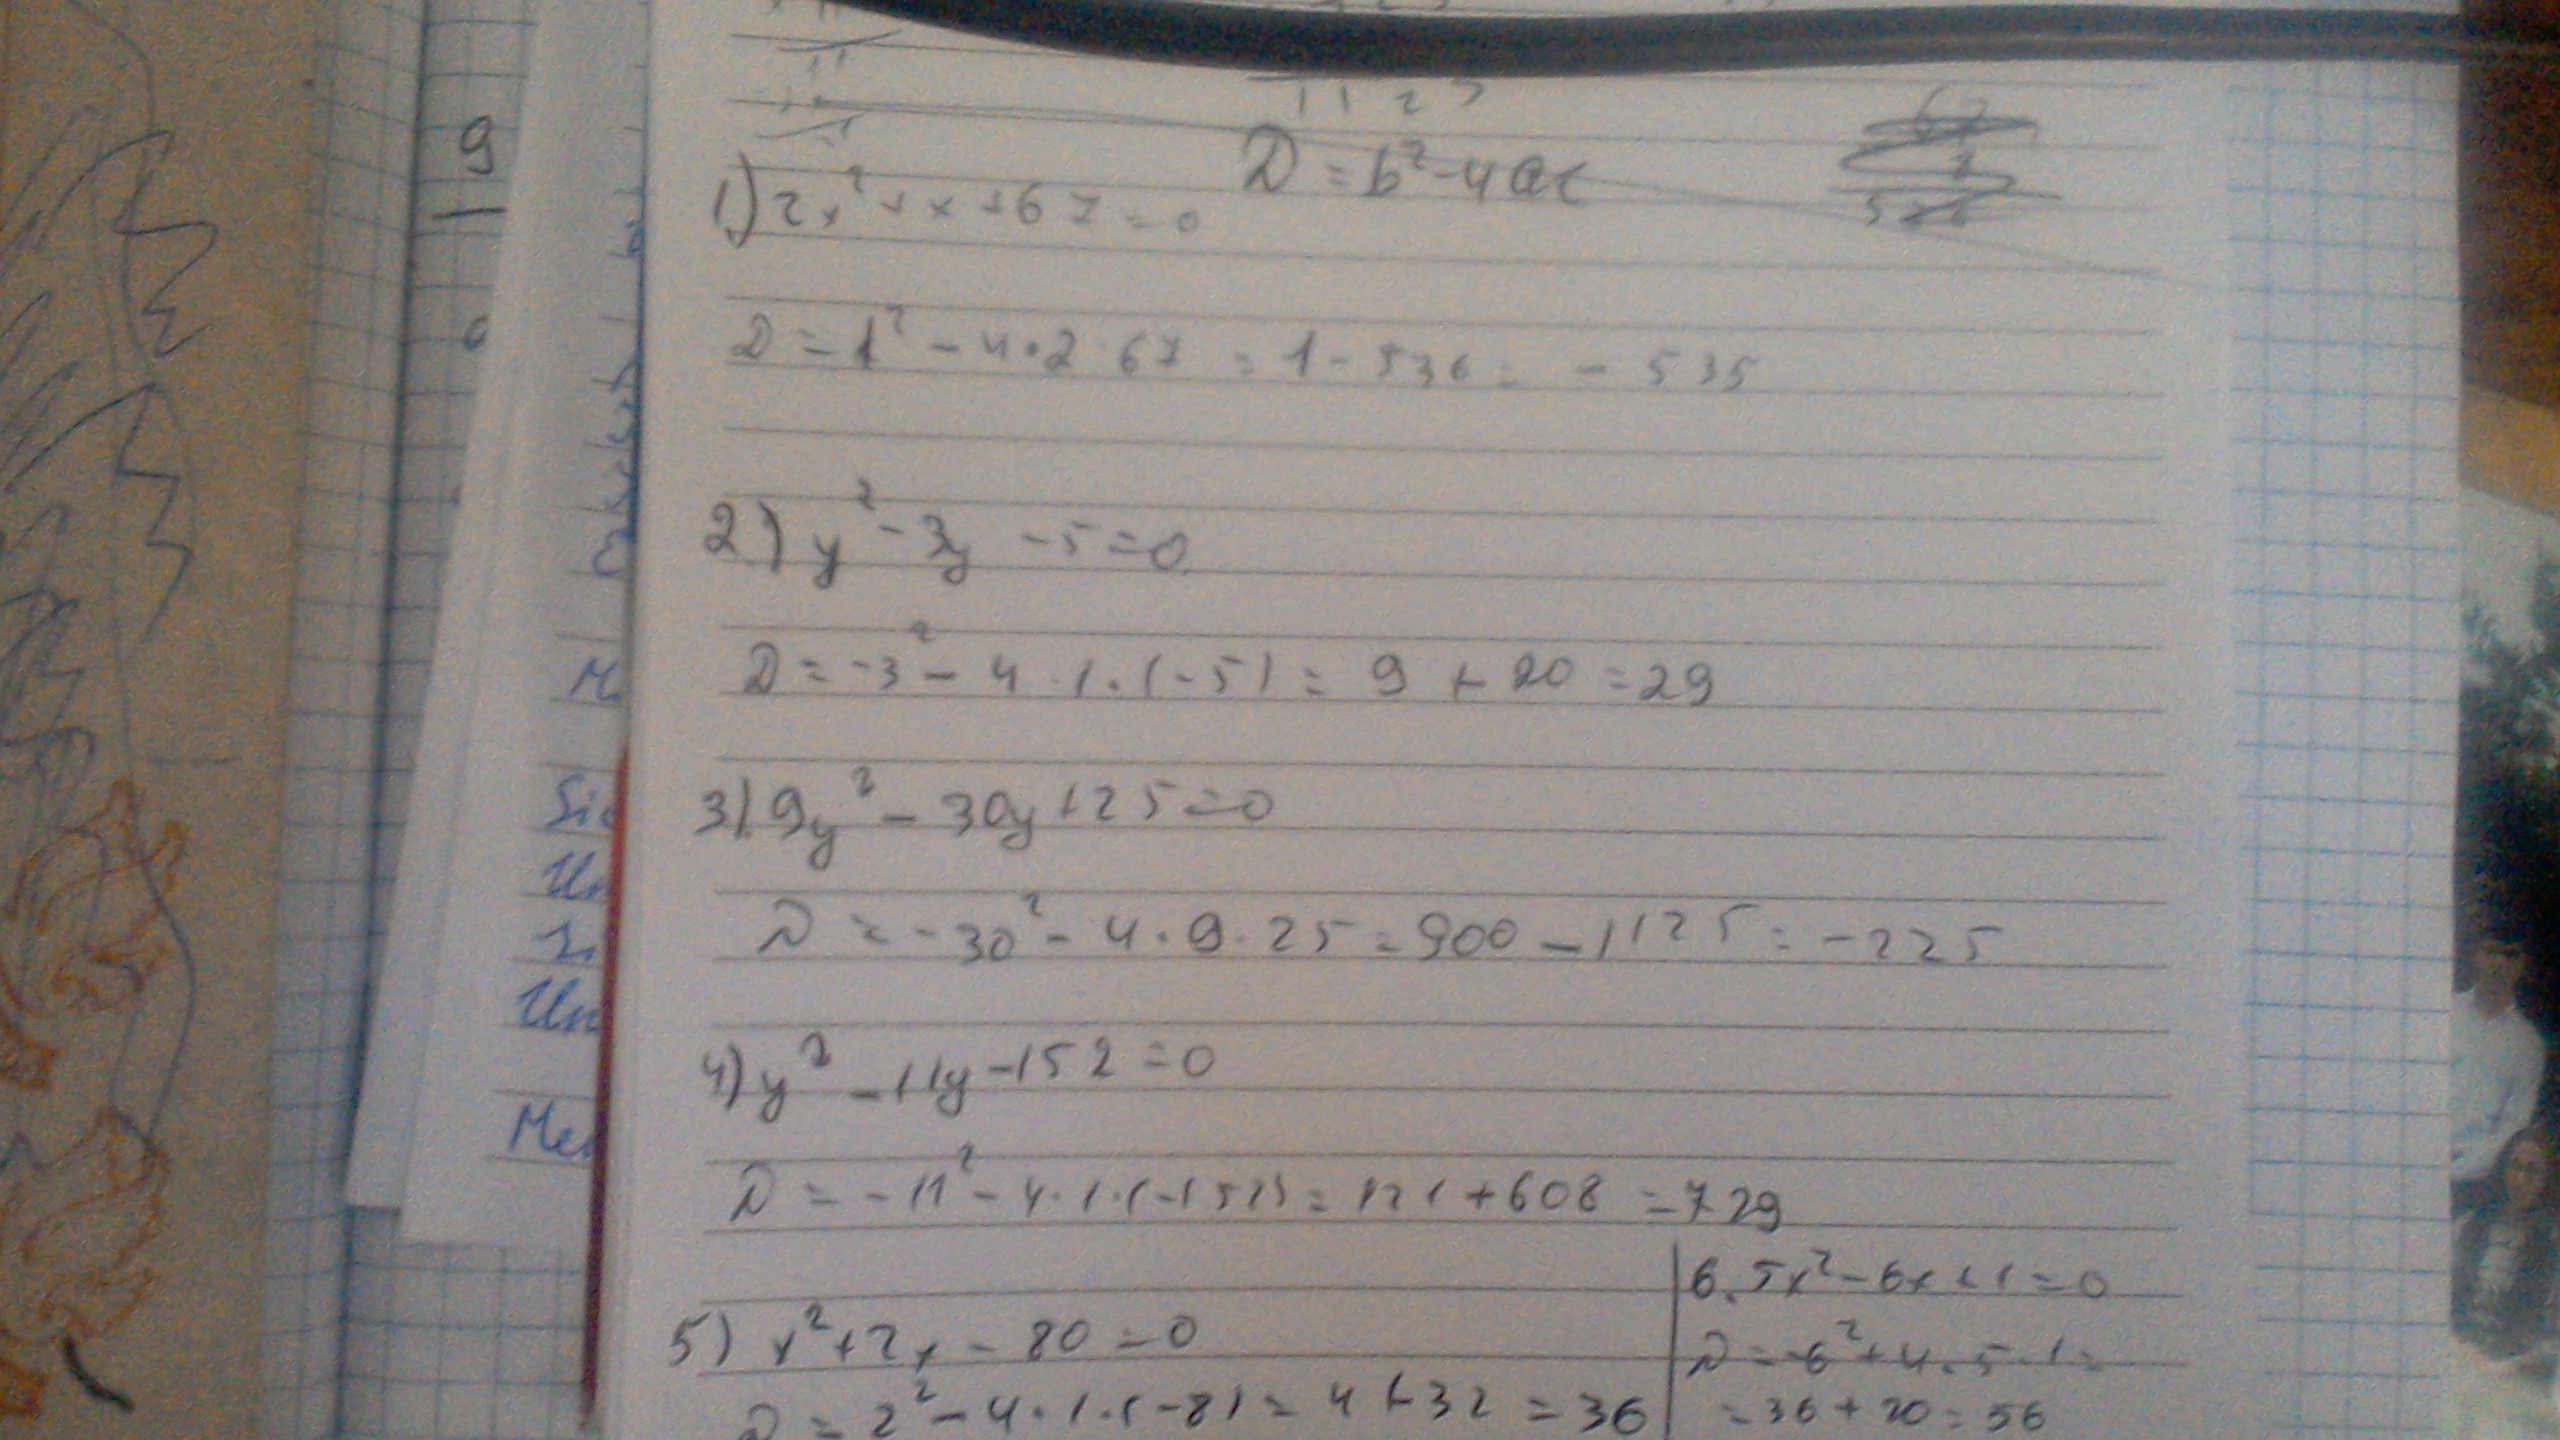 D = b² - 4ac
1) 2x² + x + 67 = 0
D = 1² - 4 · 2 · 67 = 1 - 536 = - 535
2) y² - 3y - 5 = 0
D = -3² - 4 · 1 · (-5) = 9 + 20 = 29
3) 9y² - 30y + 25 = 0
D = -30² - 4 · 9 · 25 = 900 - 1125 = -225
4) y² - 11y - 152 = 0
D = -11² - 4 · 1 · (-152) = 121 + 608 = 729
5) x² + 2x - 80 = 0
D = 2² - 4 · 1 · (-8) = 4 + 32 = 36
6. 5x² - 6x + 1 = 0
D = -6² + 4 · 5 · 1 =
= 36 + 20 = 56